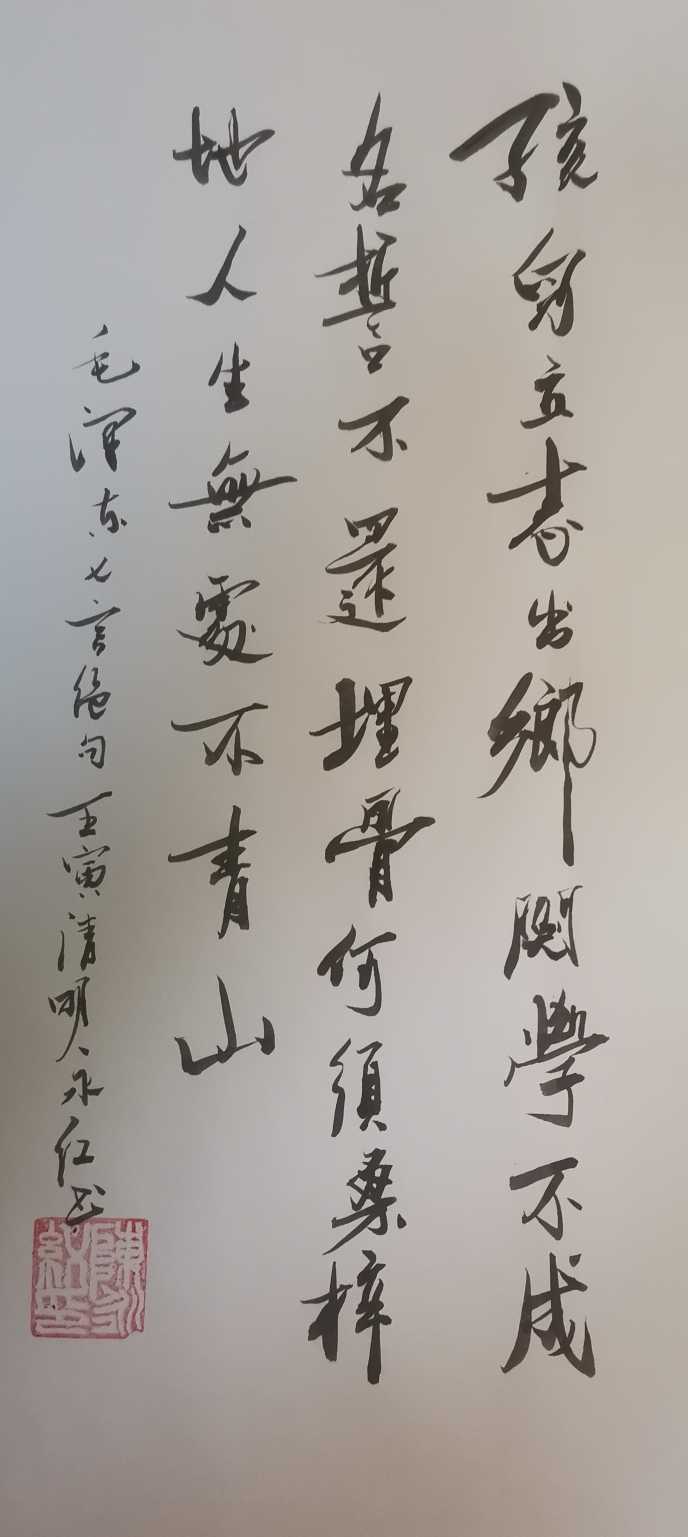 孩兒立志出鄉関學不成
名誓不還埋骨何須桑梓
地人生無處不青山
毛澤东七言绝句壬寅清明永红书
陳永紅印